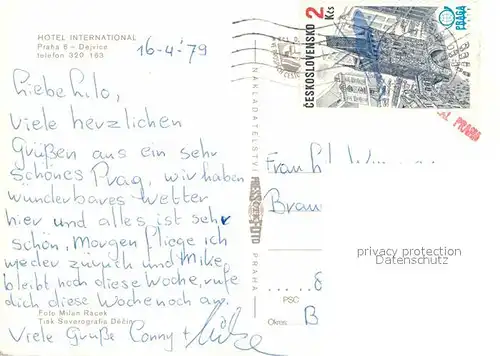 HOTEL INTERNATIONAL
Praha 6 - Dejvice
telefon 320 163
16-4-'79
Liebe Lilo,
Viele herzlichen
Grüßen aus ein sehr
schönes Prag, wir haben
wunderbares Wetter
hier und alles ist sehr
schön, Morgen fliege ich
wieder zurück und Mike
bleibt noch diese Woche, rufe
dich diese Woche noch an.
Foto Milan Racek
Tisk Severografia Děčín
Viele Grüße Conny +
NAKLADATELSTVÍ
PRESSFOTO
PRAHA
ČESKOSLOVENSKO
2 Kčs
PRAGA
PRAHA
Frau
Brau
privacy protection
Datenschutz
8
PSČ
Okres:
B